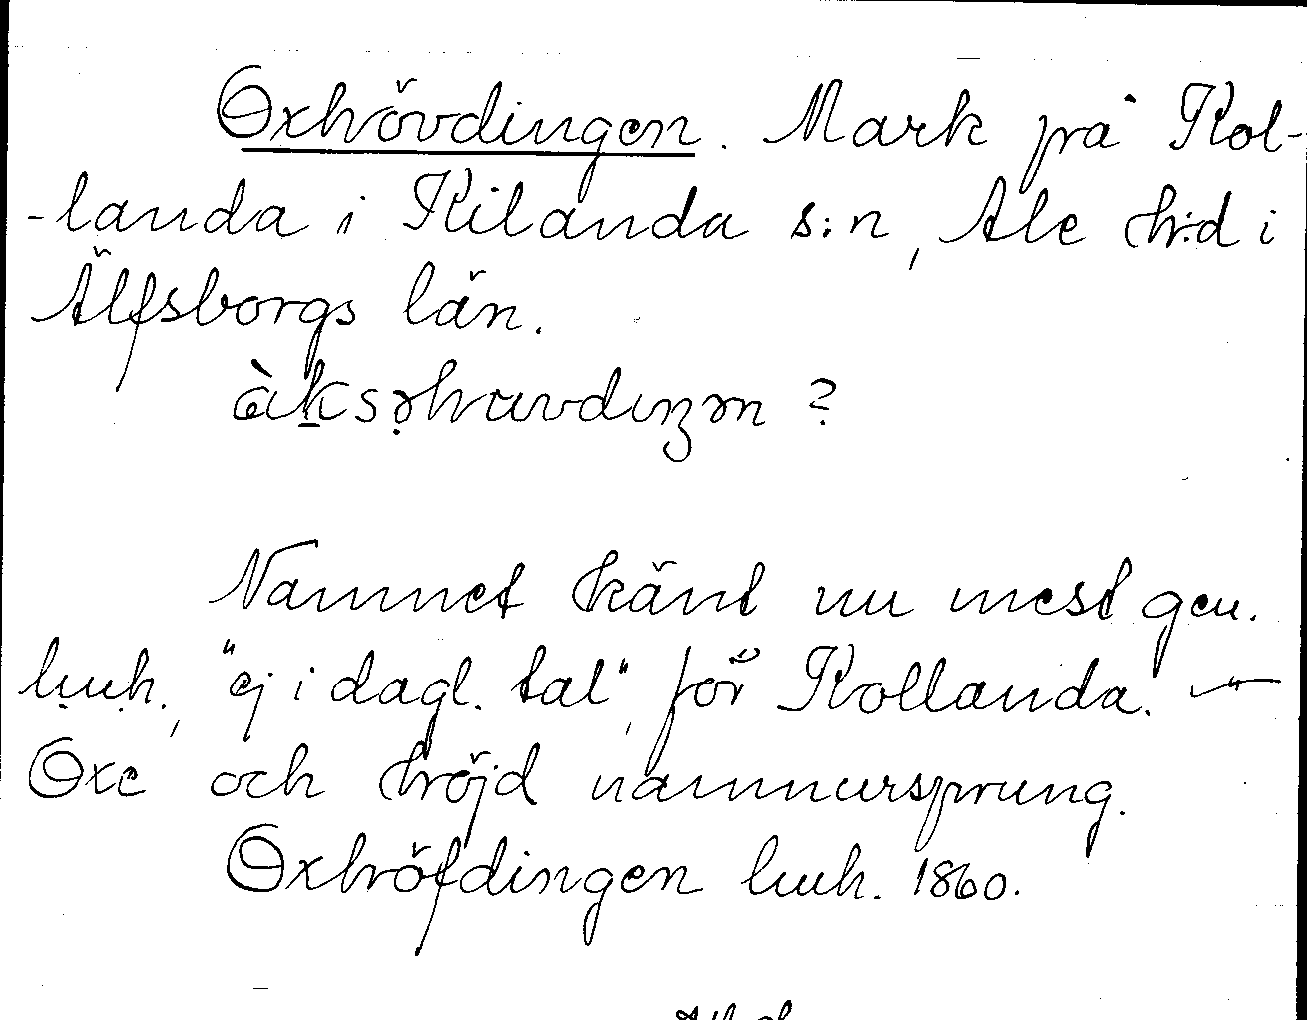 Oxhövdingen. Mark på Kol-
-landa i Kilanda s:n, Ale h:d i
Älfsborgs län.
?
Namnet känt nu mest gen.
luuh., "ej i dagl. tal", för Kollanda. —"—
Oxe och höjd namnursprung.
Oxhöfdingen luuh. 1860.